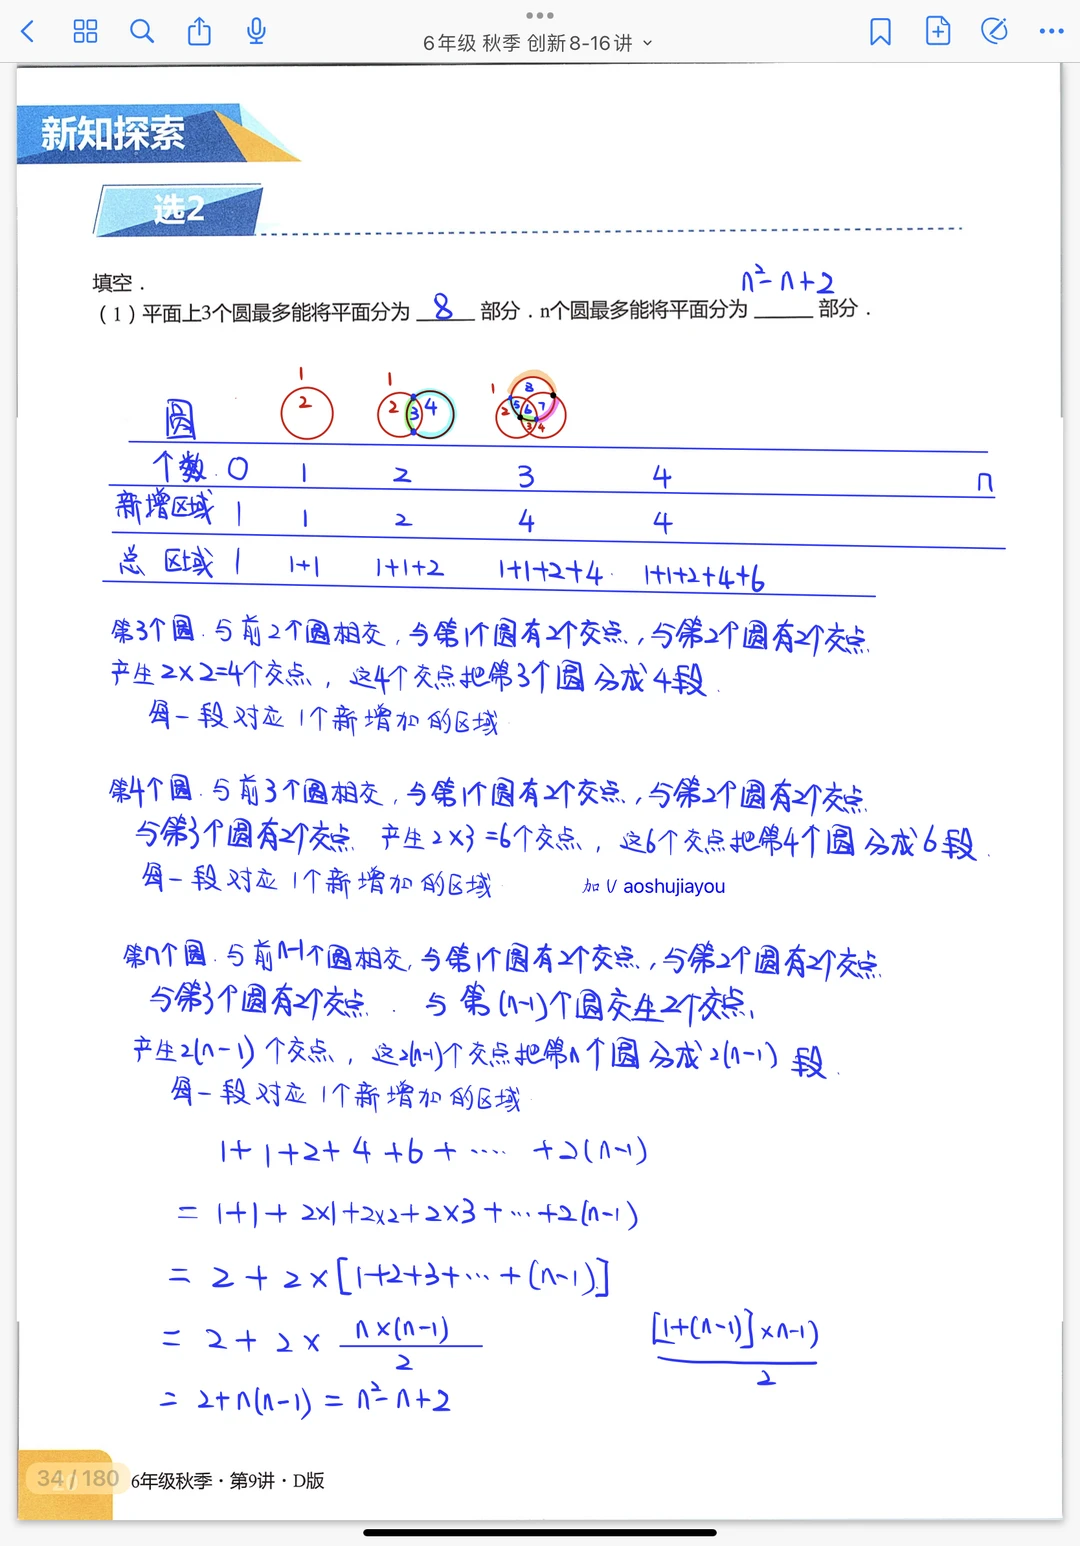 6年级 秋季 创新8-16讲
新知探索
选2
填空.
n²-n+2
(1)平面上3个圆最多能将平面分为 8 部分.n个圆最多能将平面分为 ______ 部分.
1 1 1
2 2 3 4 8 5 7 2 6 3 4
圆
个数 0 1 2 3 4 n
新增区域 1 1 2 4 4
总 区域 1 1+1 1+1+2 1+1+2+4 1+1+2+4+6
第3个圆.与前2个圆相交,与第1个圆有2个交点,与第2个圆有2个交点
产生2×2=4个交点,这4个交点把第3个圆分成4段.
每一段对应1个新增加的区域
第4个圆.与前3个圆相交,与第1个圆有2个交点,与第2个圆有2个交点
与第3个圆有2个交点 产生2×3=6个交点,这6个交点把第4个圆分成6段.
每一段对应1个新增加的区域
加V aoshujiayou
第n个圆.与前n-1个圆相交,与第1个圆有2个交点,与第2个圆有2个交点
与第3个圆有2个交点. 与第(n-1)个圆交生2个交点,
产生2(n-1)个交点,这2(n-1)个交点把第n个圆分成2(n-1)段.
每一段对应1个新增加的区域
1+1+2+4+6+····+2(n-1)
=1+1+2×1+2×2+2×3+···+2(n-1)
=2+2×[1+2+3+···+(n-1)]
=2+2×n×(n-1)/2
[1+(n-1)]×n-1)/2
=2+n(n-1)=n²-n+2
34/180
6年级秋季·第9讲·D版